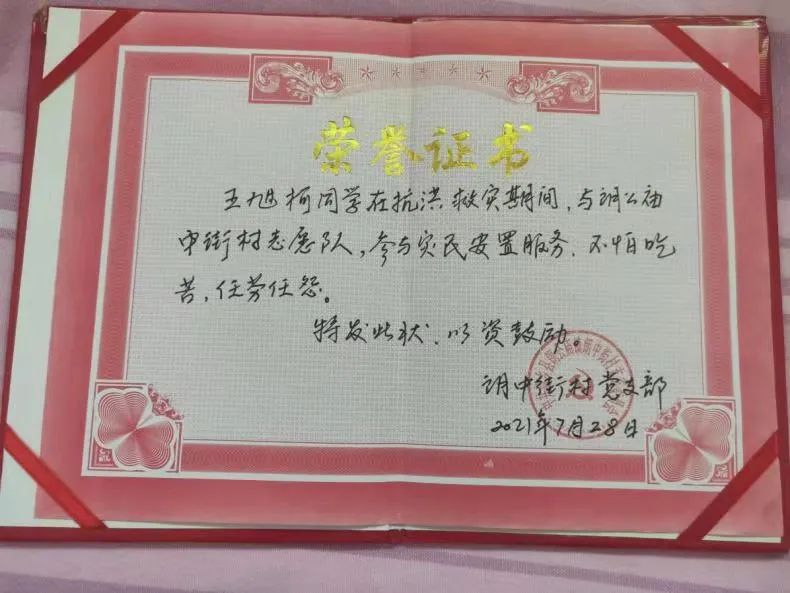 荣誉证书
王旭柯同学在抗洪救灾期间,与胡公庙
中街村志愿队,参与灾民安置服务、不怕吃
苦,任劳任怨。
特发此状、以资鼓励。
中街村党支部
2021年7月28日